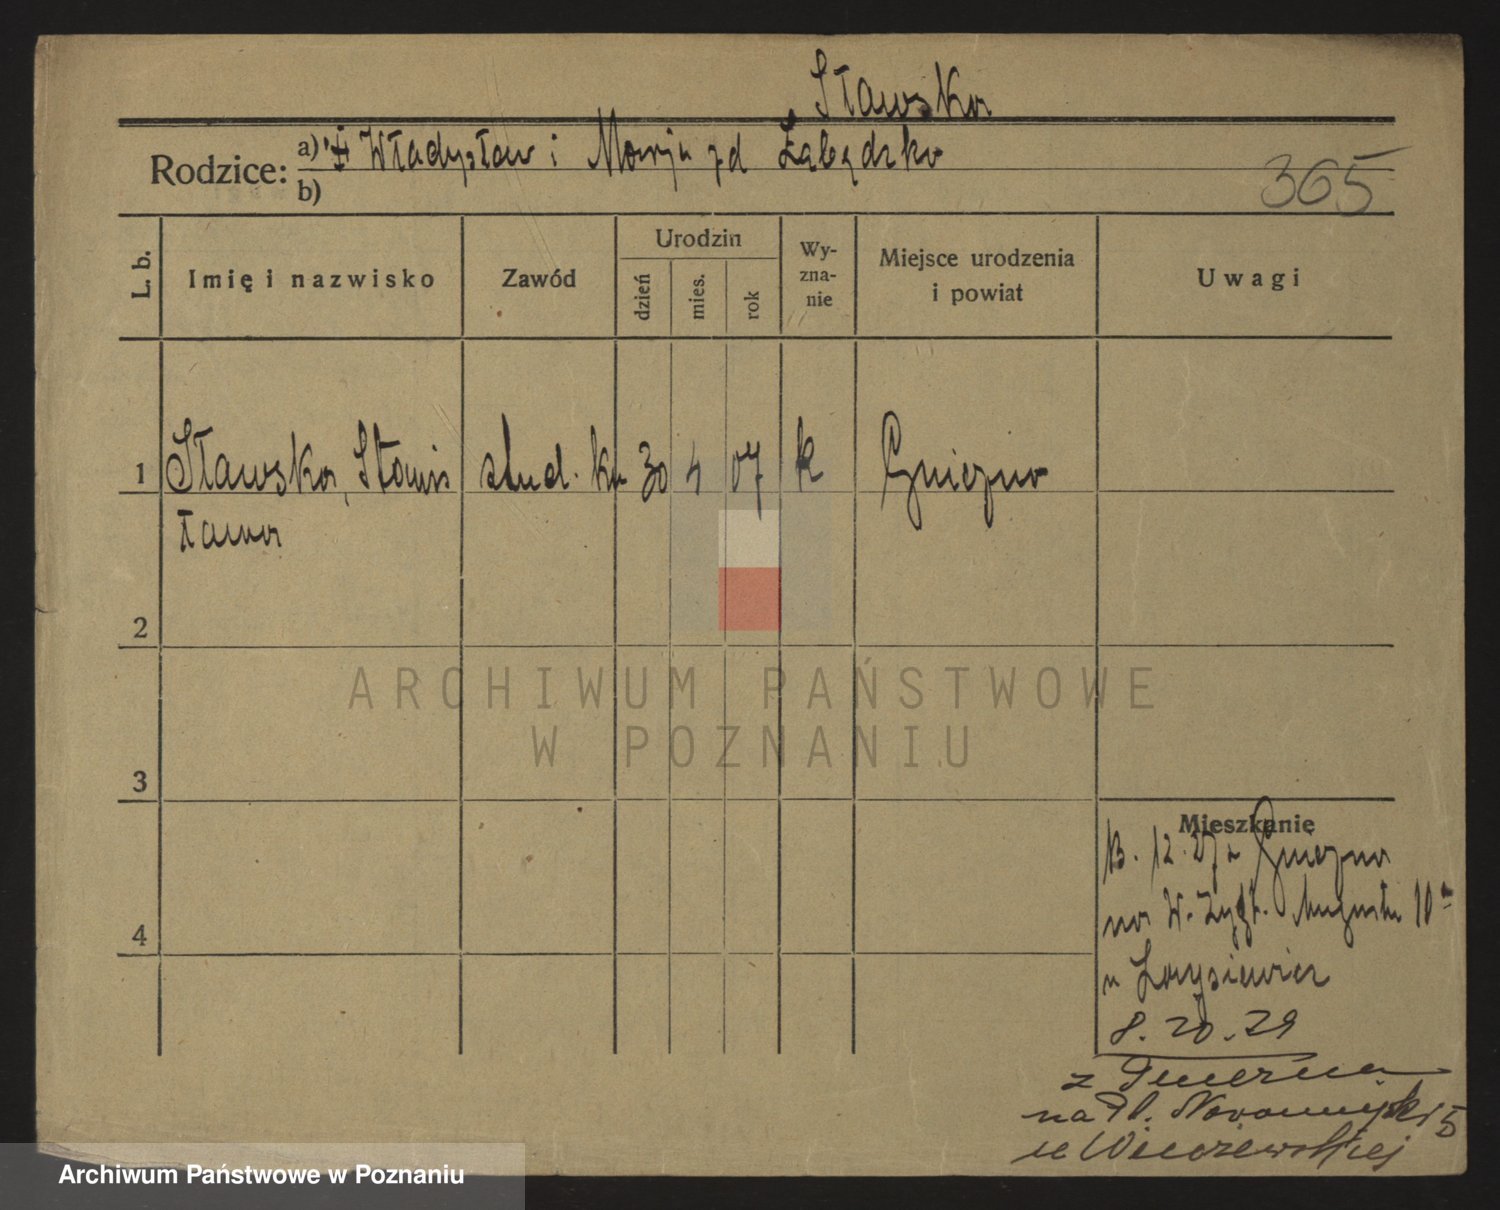 Sławska
Rodzice: a) Władysław i Marja zd Łabędzka
b)
365
L. b.
Imię i nazwisko
Zawód
Urodzin
dzień
mies.
rok
Wy-
zna-
nie
Miejsce urodzenia
i powiat
Uwagi
1 Sławska, Stanis stud. 30 4 07 k Gniezno
ława
2
ARCHIWUM PAŃSTWOWE
W POZNANIU
3
4
Mieszkanie
13. 12. 27 z Gniezna
na W. Zygt. Augusta 10
u
8. 20. 29
z Gniezna
na Pl. Nowomiejski 5
u
Archiwum Państwowe w Poznaniu